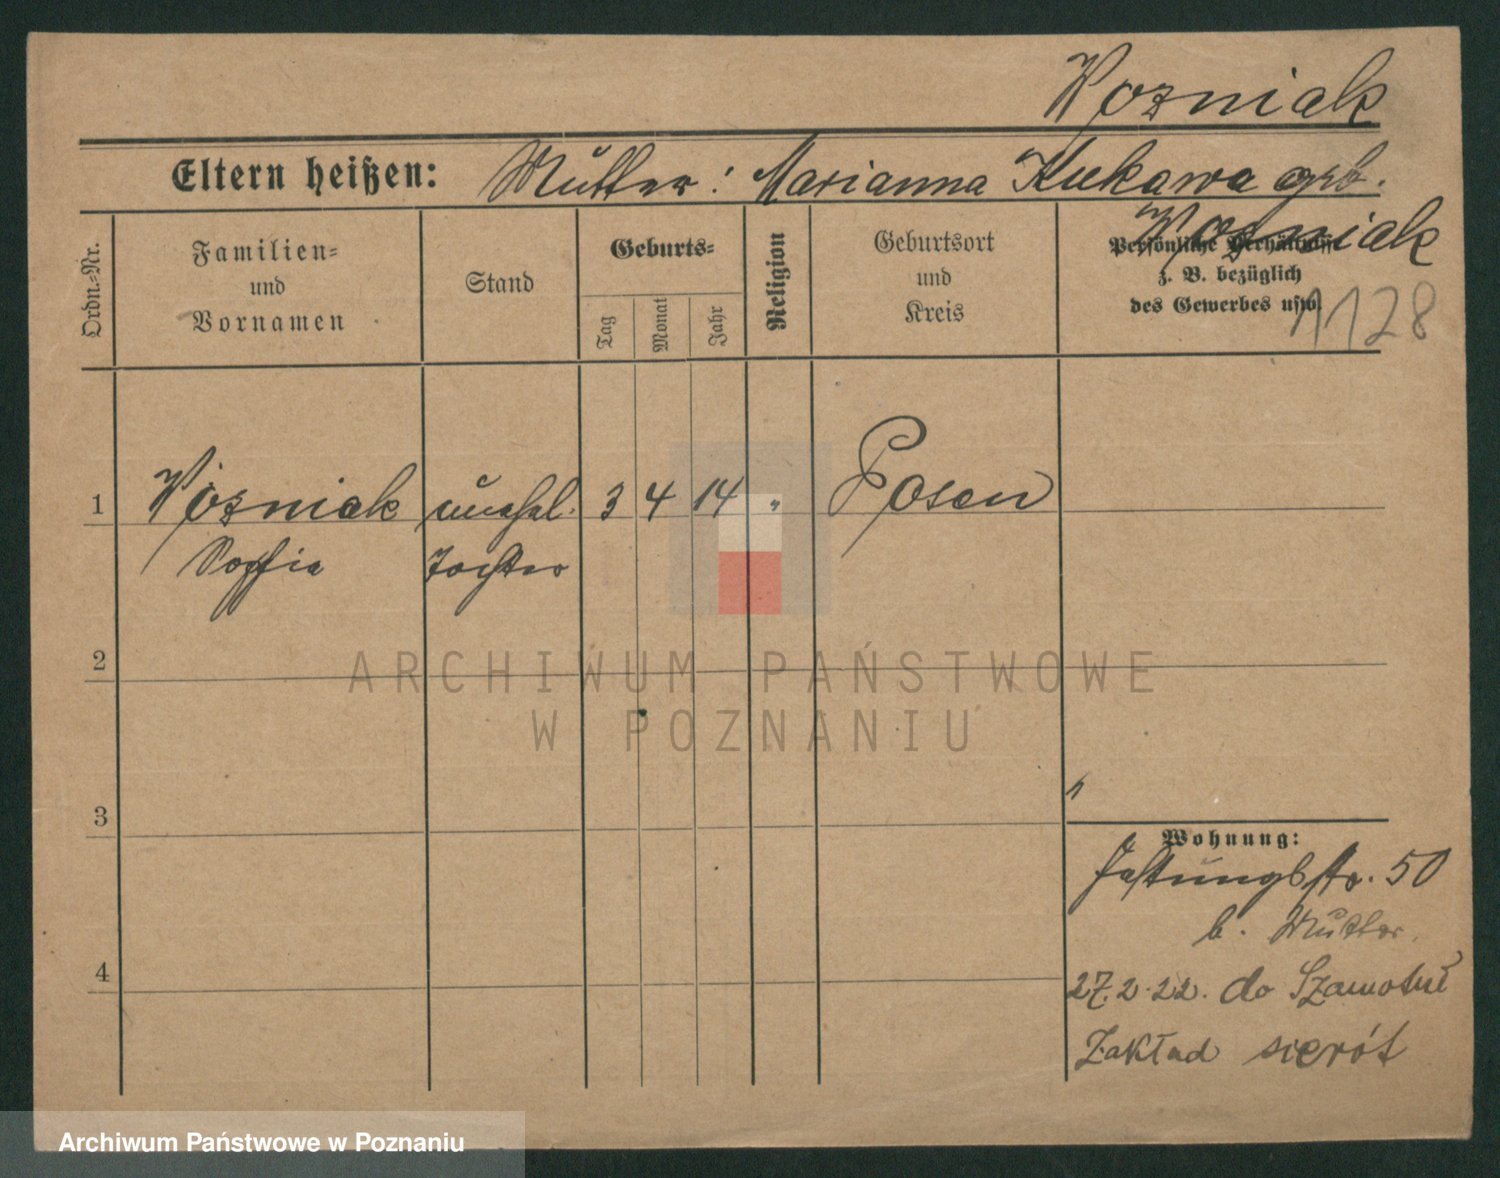 Wozniak
Eltern heißen: Mutter: Marianna Kukawa geb.
Wozniak
Ordn.-Nr.
Familien-
und
Vornamen
Stand
Geburts-
Tag
Monat
Jahr
Religion
Geburtsort
und
Kreis
Persönliche Verhältnisse
z. B. bezüglich
des Gewerbes usw.
1128
1 Wozniak unehel. 3 4 14 " Posen
Sophie Tochter
2
3
4
Wohnung:
Festungsstr. 50
b. Mutter.
27.2.22. do Szamotuł
Zakład sierót
ARCHIWUM PAŃSTWOWE
W POZNANIU
Archiwum Państwowe w Poznaniu